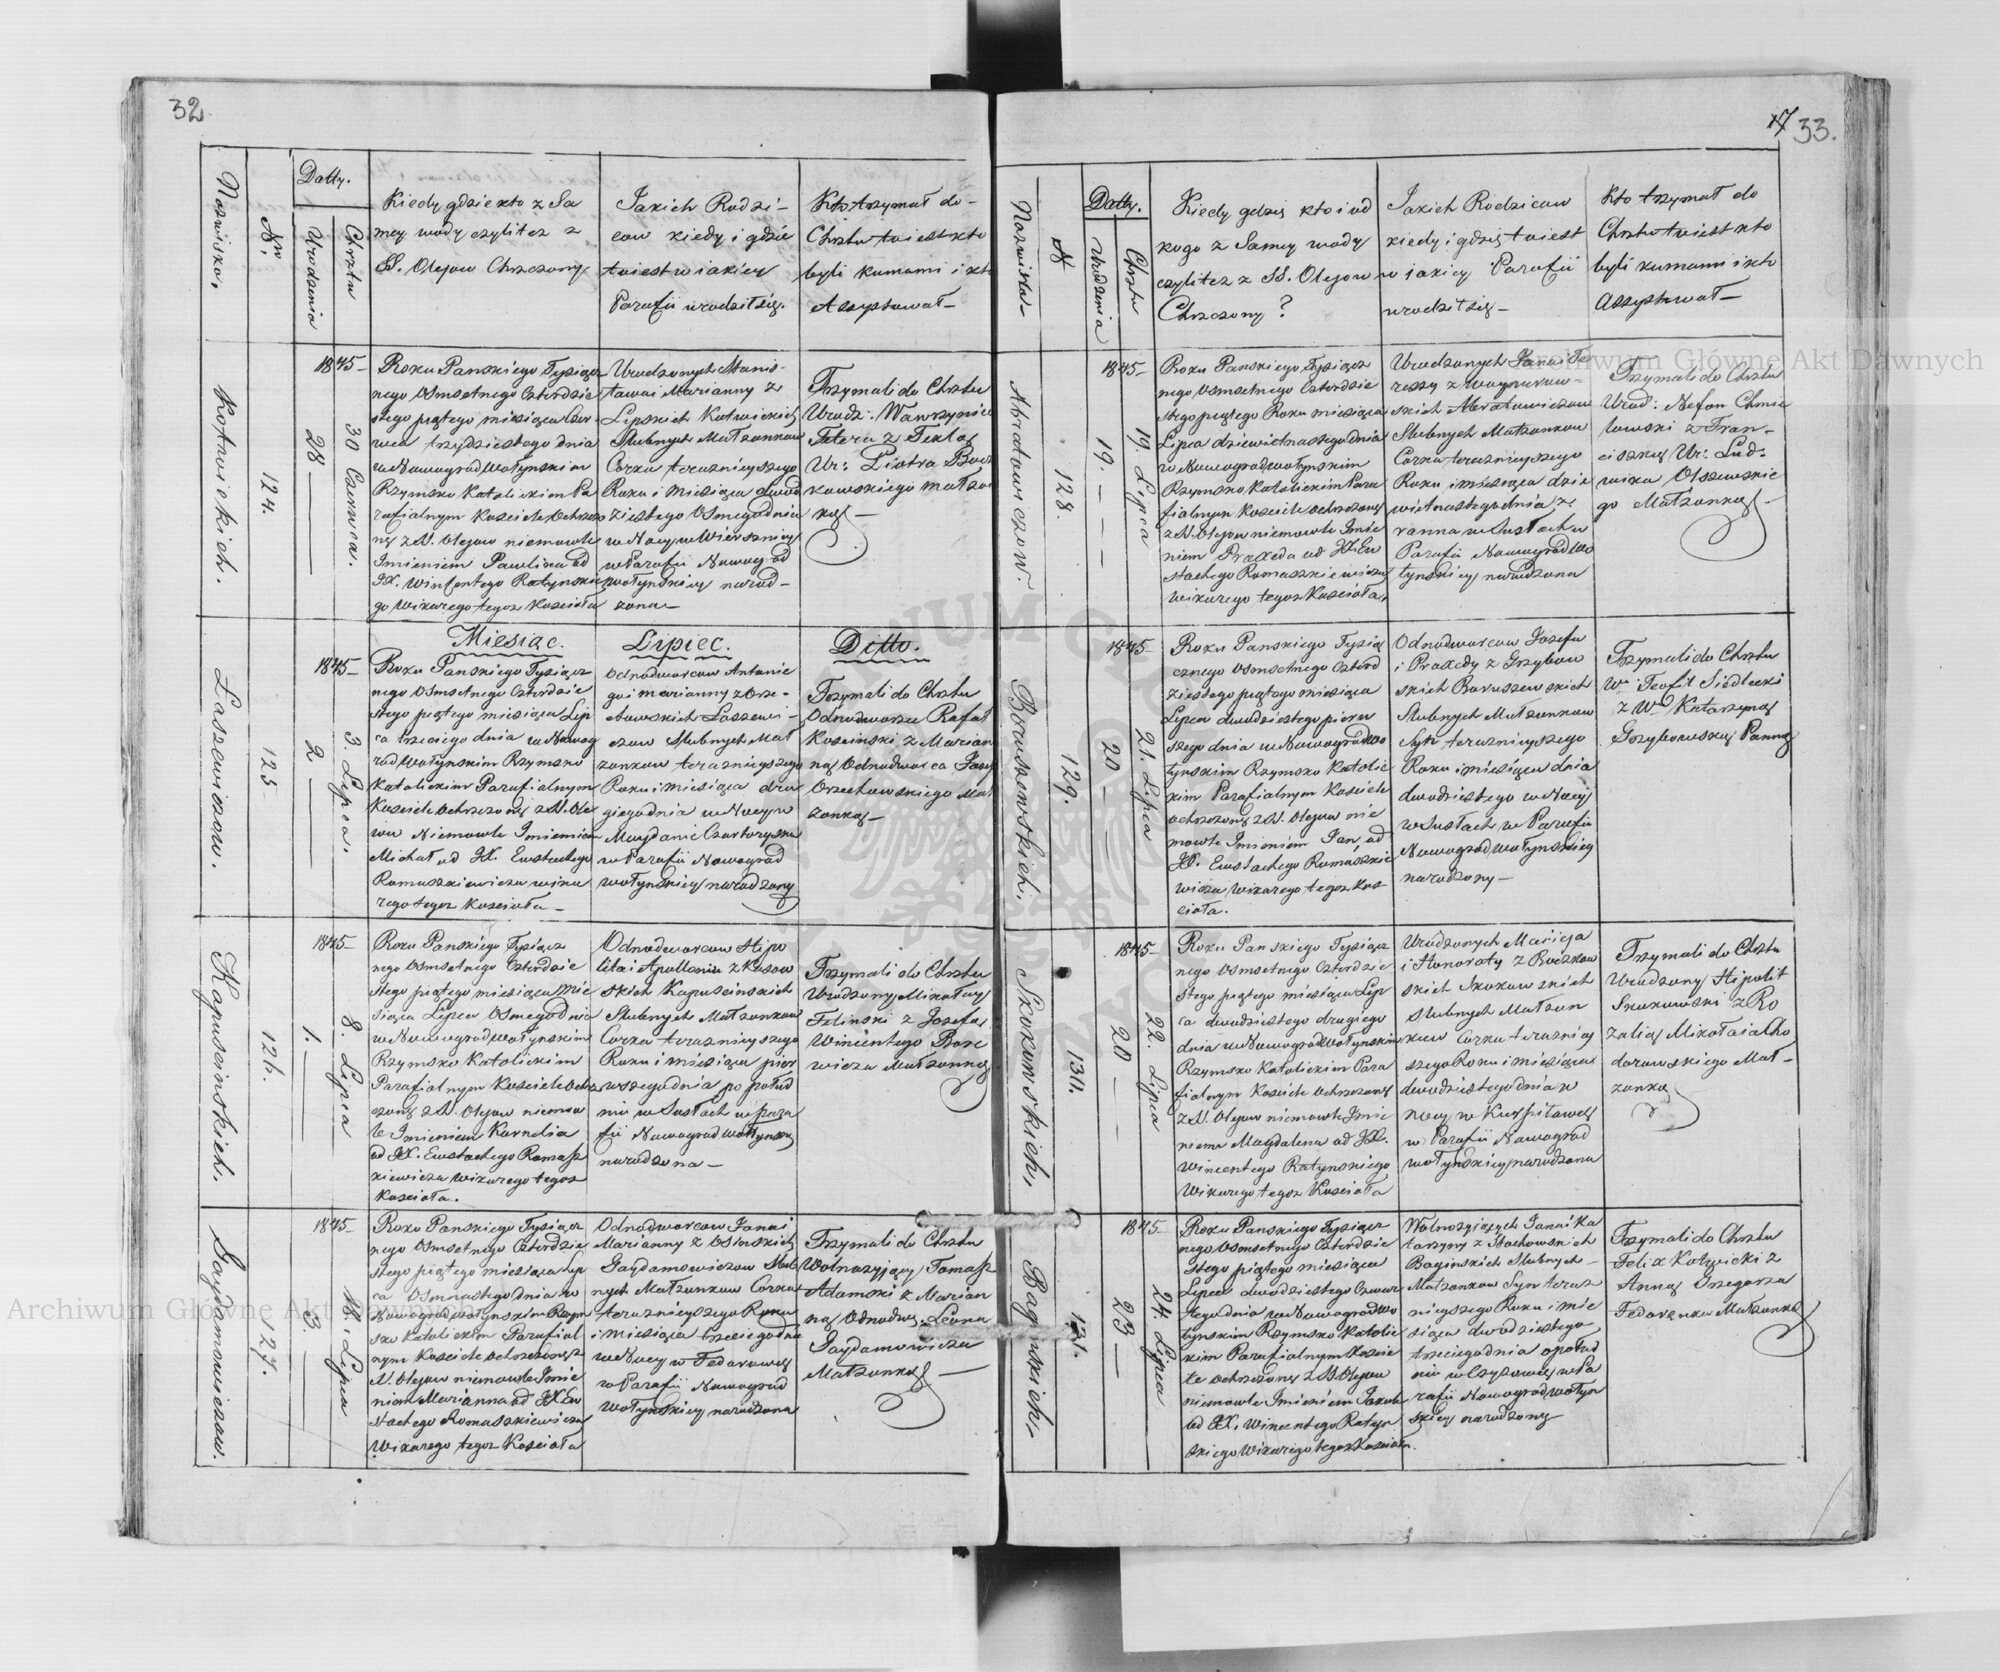 32
Nazwisko.
Nro
Datty.
Urodzenia
Chrztu
Kiedy gdzie kto z Sa
mey wody czyli też z
SS. Olejow Chrzczony
Jakich Rodzi-
cow kiedy i gdzie
to iest w iakiey
Parafii urodził się.
Kto trzymał do-
Chrztu to iest kto
byli kumami i kto
Assystował-
Kotwickich.
124.
1845-
28
30 Czerwca.
Roku Panskiego Tysiącz
nego Osmsetnego Czterdzie
stego piątego miesiąca Czer
wca trzydziestego dnia
w Nowogradwołynskim
Rzymsko Katolickim Pa
rafialnym Kosciele Ochrzczo
ną z SS. Olejow niemowle
Imieniem Paulina od
JX. Wincentego Ratynskie
go Wikarego tegoż Koscioła
Urodzonych Stanis-
ława i Marianny z
Lipskich Kotwickich
Slubnych Małzonkow
Corka teraznieyszego
Roku i Miesiąca dwud
ziestego Osmego dnia
w Nocy w Wiersznicy
w Parafii Nowograd
wołynskiey narod-
zona-
Trzymali do Chrztu
Urodz: Wawrzyniec
Fetera z Teklą
Ur: Piotra Bucz
kowskiego małzo
ką-
Miesiąc. Lipiec. Ditto.
Laszewiczow.
125
1845-
2
3. Lipca.
Roku Panskiego Tysiącz
nego Osmsetnego Czterdzie
stego piątego miesiąca Lip
ca trzeciego dnia w Nowog
radwołynskim Rzymsko
Katolickim Parafialnym
Kosciele Ochrzczony z SS. Ole
jow Niemowle Imieniem
Michał od JX. Eustachego
Romaszkiewicza wika
rego tegoż Kosciola-
Odnodworcow Antonie
go i marianny z Orze-
chowskich Laszewi-
czow Slubnych Mał
zonkow teraznieyszego
Roku i miesiąca dru
giego dnia w Nocy w
Maydanie Czartoryskim
w Parafii Nowograd
wołynskiey narodzony
Trzymali do Chrztu
Odnodworzec Rafał
Kosinski z Marian
ną Odnodworca Jozef
Orzechowskiego Mał
zonką-
Kapuscinskich.
126.
1845-
1.
8. Lipca
Roku Panskiego Tysiącz
nego Osmsetnego Czterdzie
stego piątego miesiąca Mie
siąca Lipca Osmego dnia
w Nowogradwołynskim
Rzymsko Katolickim
Parafialnym Kosciele Ochrz
czoną z SS. Olejow niemow
le Imieniem Kornelia
od JX. Eustachego Romasz
kiewicza wikarego tegoż
Kosciola.
Odnodworcow Hipo
lita i Apollonii z Kosow
skich Kapuscinskich
Slubnych Małzonkow
Corka teraznieyszego
Roku i miesiąca pier
wszego dnia po połud
niu w Susłach w para
fii Nowogradwołynskiey
narodzona-
Trzymali do Chrztu
Urodzony Mikołay
Felinski z Jozefą
Wincentego Bore
wicza Małzonką
Gaydamowiczow.
127.
1845-
3.
18. Lipca
Roku Panskiego Tysiącz
nego Osmsetnego Czterdzie
stego piątego miesiąca Lip
ca Osmnastego dnia w
Nowogradwołynskim Rzym
sko Katolickim Parafial
nym Kosciele Ochrzczoną z
SS. Olejow niemowle Imie
niem Marianna od JX Eu
stachego Romaszkiewicza
Wikarego tegoż Kosciola
Odnodworcow Jana i
Marianny z Osinskich
Gaydamowiczow Slub
nych Małzonkow Corka
teraznieyszego Roku
i miesiąca trzeciego dnia
w Nocy w Fedorowcy
w Parafii Nowograd
wołynskiey narodzona
Trzymali do Chrztu
Wolnozyjący Tomasz
Adamski z Marian
ną Odnodwor. Leona
Gaydamowicza
Małzonką-
17 33.
Nazwisko-
N
Datty.
Urodzenia
Chrztu
Kiedy gdzie kto i od
kogo z Samey wody
czyli też z SS. Olejow
Chrzczony?
Jakich Rodzicow
kiedy i gdzie to iest
w jakiey Parafii
urodził się-
Kto trzymał do
Chrztu to iest kto
byli kumami i kto
Assystował-
Abratowiczow.
128.
1845-
19.
19. Lipca
Roku Panskiego Tysiącz
nego Osmsetnego Czterdzie
stego piątego Roku miesiąca
Lipca dziewietnastego dnia
w Nowogradwołynskim
Rzymsko Katolickim Para
fialnym Kosciele ochrzczoną
z SS. Olejow niemowle Imie
niem Praxeda od JX Eu
stachego Romaszkiewicza
wikarego tegoż Kosciola,
Urodzonych Jana i Te
ressy z Woynarow-
skich Abratowiczow
Slubnych Małzonkow
Corka teraznieyszego
Roku i miesiąca dzie
wietnastego dnia z
ranna w Susłach w
Parafii Nowogradwo
łynskiey narodzona
Trzymali do Chrztu
Urod: Nefon Chmie
lowski z Fran-
ciszką Ur: Lud-
wika Olszewskie
go Małzonką-
Boruszewskich.
129.
1845-
20
21. Lipca
Roku Panskiego Tysią
cznego Osmsetnego Czterd
ziestego piątego miesiąca
Lipca dwudziestego pierw
szego dnia w Nowogradwo
łynskim Rzymsko Katolic
kim Parafialnym Kosciele
ochrzczony z SS. Olejow nie
mowle Imieniem Jan, od
JX. Eustachego Romaszkie
wicza Wikarego tegoż Kos
ciola.
Odnodworcow Jozefa
i Praxedy z Grzybow
skich Boruszewskich
Slubnych Małzonkow
Syn teraznieyszego
Roku i miesiąca dnia
dwudziestego w Nocy
w Susłach w Parafii
Nowogradwołynskiey
narodzony-
Trzymali do Chrztu
Wny Teofil Siedlecki
z Wną Katarzyną
Grzybowską Panną
Skokowskich,
130.
1845-
20
22. Lipca
Roku Panskiego Tysiącz
nego Osmsetnego Czterdzie
stego piątego miesiąca Lip
ca dwudziestego drugiego
dnia w Nowogradwołynskim
Rzymsko Katolickim Para
fialnym Kosciele Ochrzczoną
z SS. Olejow niemowle Imie
niem Magdalena od JX.
Wincentego Ratynskiego
Wikarego tegoż Kosciola
Urodzonych Macieja
i Honoraty z Boczkow
skich Skokowskich
slubnych Małzon
kow Corka terazniey
szego Roku i miesiąca
dwudziestego dnia w
nocy w Kuspiłowey
w Parafii Nowograd
wołynskiey narodzona
Trzymali do Chrztu
Urodzony Hipolit
Skokowski z Ro
zalią Mikołaia Cho
dorowskiego Mał-
zonką
Baginskich.
131.
1845-
23
24. Lipca
Roku Panskiego Tysiącz
nego Osmsetnego Czterdzie
stego piątego miesiąca
Lipca dwudziestego Czwar
tego dnia w Nowogradwo
łynskim Rzymsko Katolic
kim Parafialnym Koscie
le Ochrzczony z SS Olejow
niemowle Imieniem Jakub
od JX. Wincentego Ratyn
skiego Wikarego tegoż Kosciola.
Wolnozyjących Jana i Ka
tarzyny z Stachowskich
Baginskich Slubnych-
Małzonkow Syn teraz
nieyszego Roku i mie
siąca dwudziestego
trzeciego dnia o połud
niu w Czyzowey w Pa
rafii Nowogradwołyn
skiey narodzony
Trzymali do Chrztu
Felix Kotwicki z
Anną Grzegorza
Fedorenka Małzonką
Archiwum Główne Akt Dawnych
Archiwum Główne Akt Dawnych